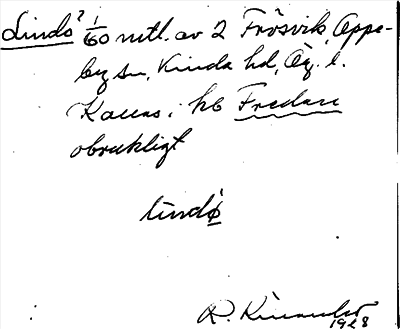 Lindö? 1/60 mtl. av 2 Frösvik, Oppe-
by sn, Kinda hd, Ög. l.
Kallas i kb Fredan
obrukligt
lindø
R. Kinander
1928